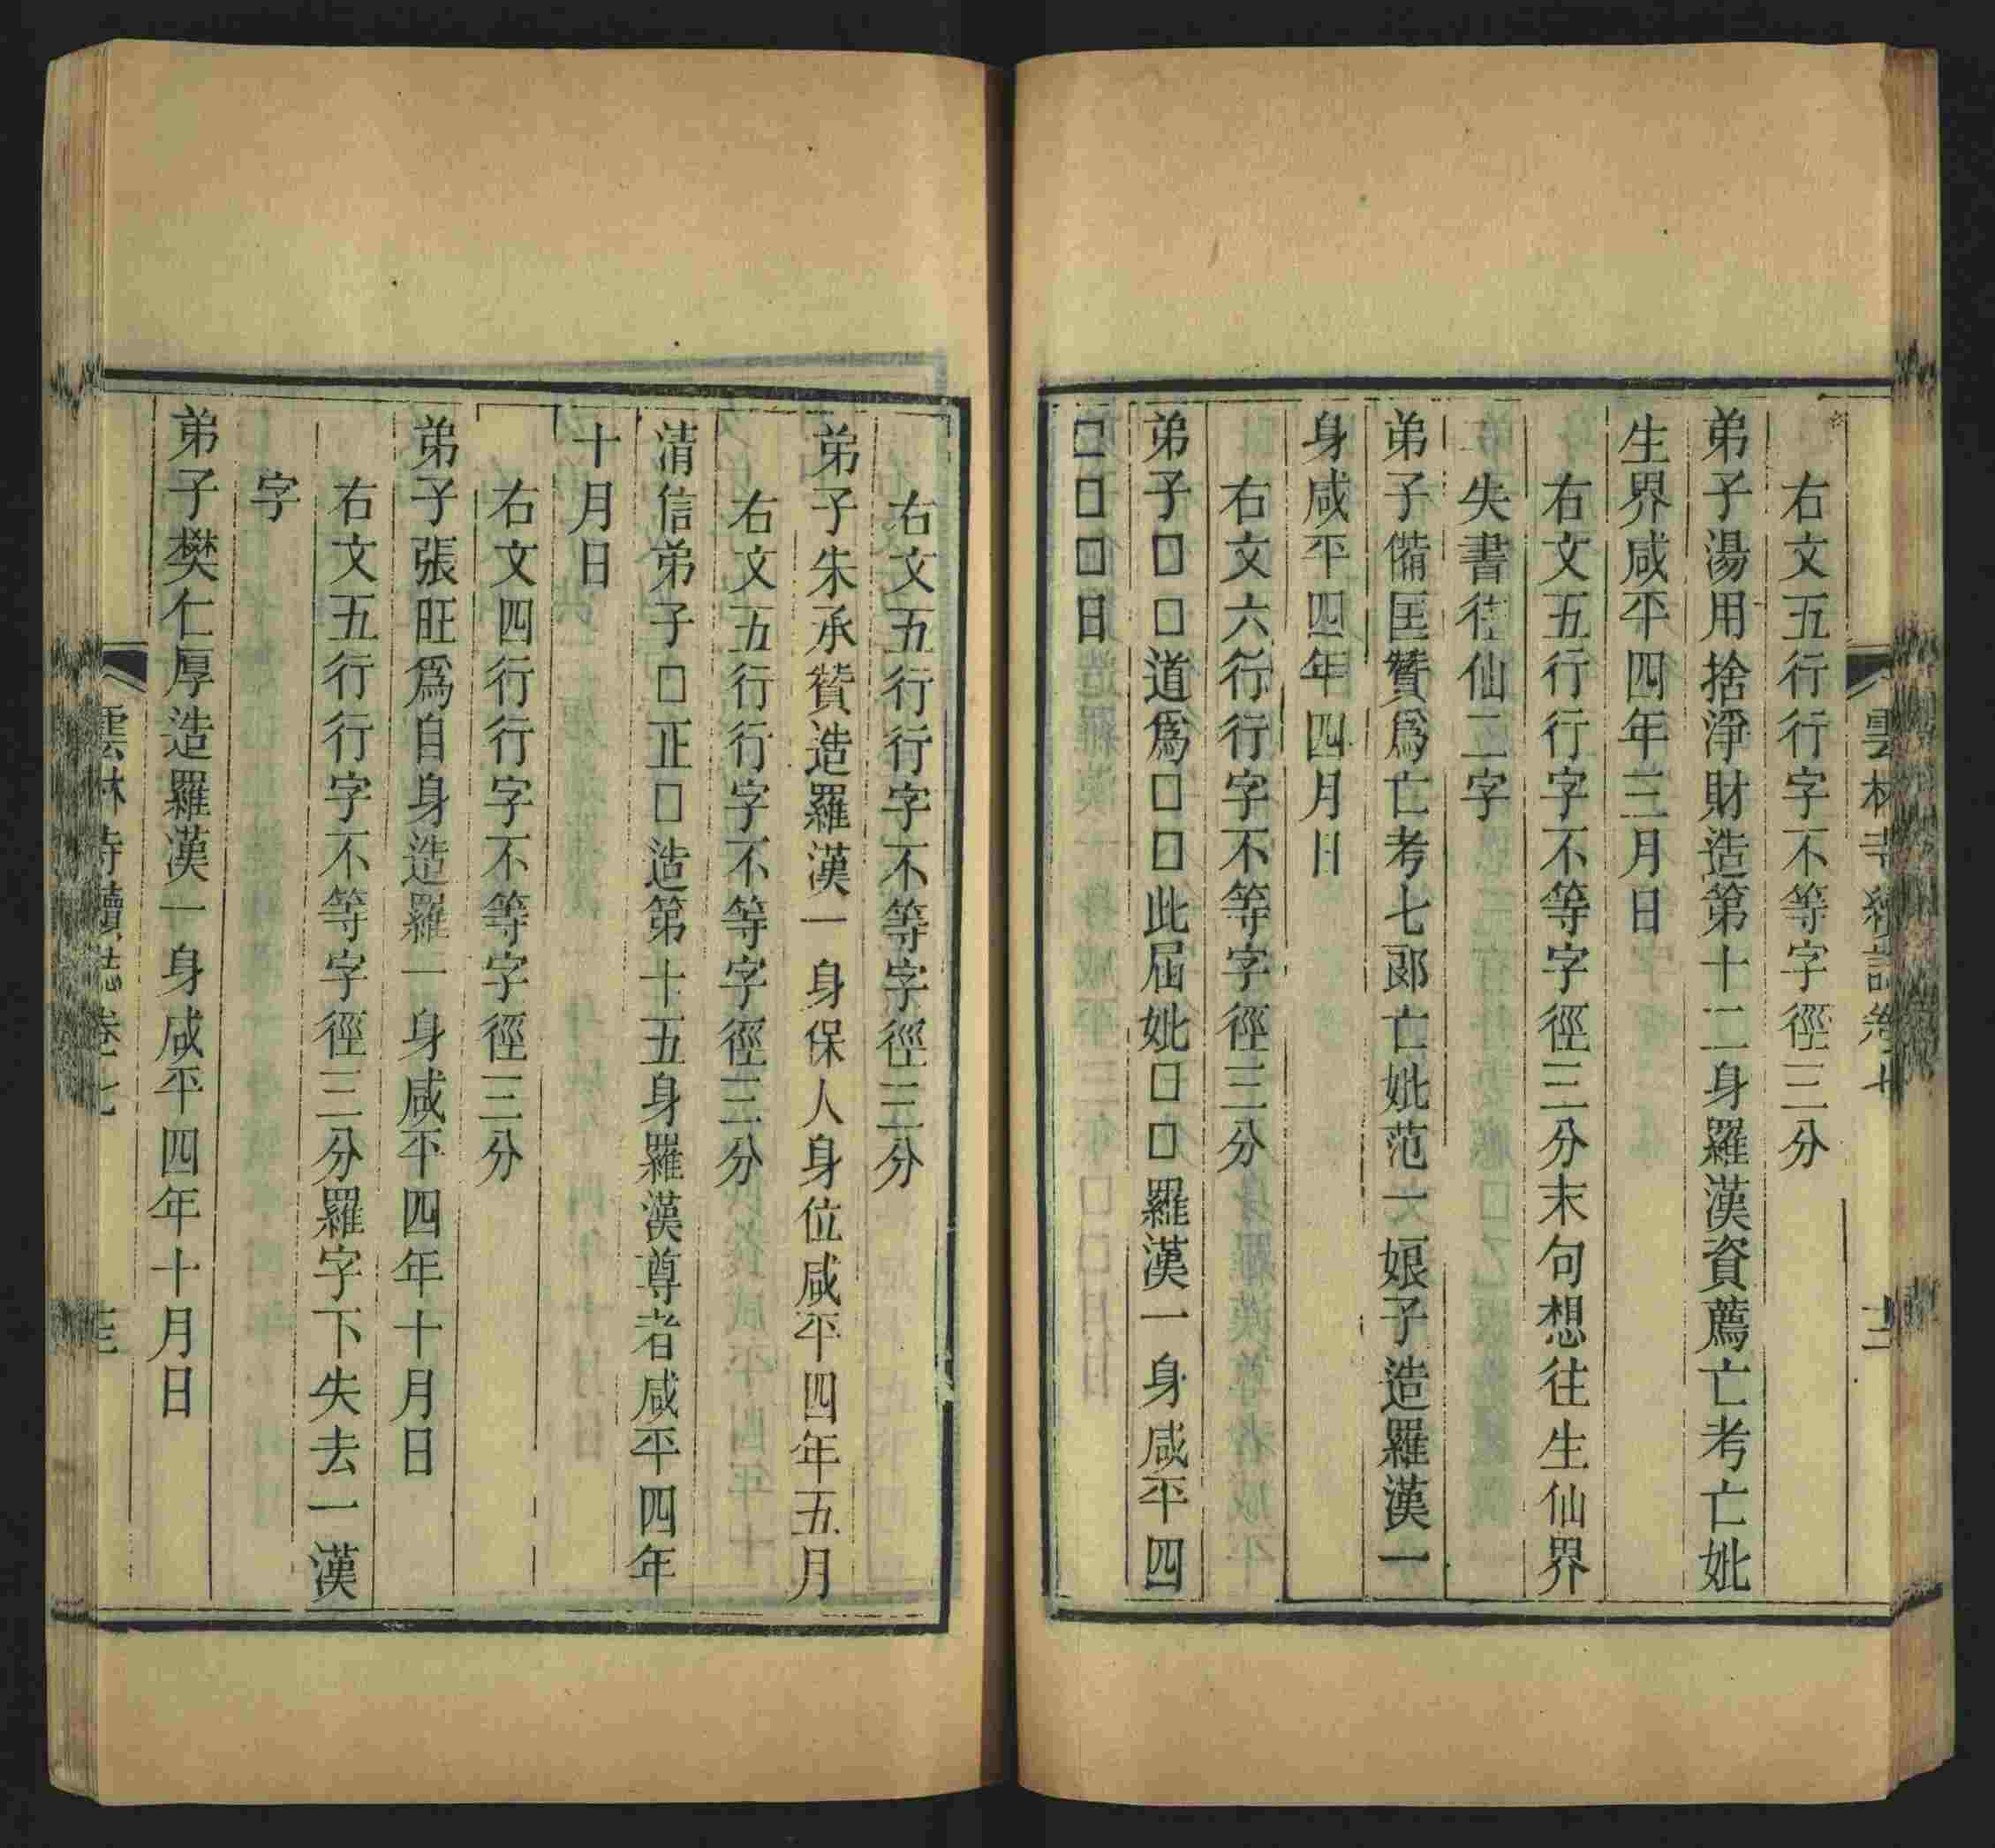 雲林寺續誌卷七
十二
右文五行行字不等字徑三分
弟子湯用捨淨財造第十二身羅漢資薦亡考亡妣
生界咸平四年三月日
右文五行行字不等字徑三分末句想往生仙界
失書往仙二字
弟子備匡贊爲亡考七郎亡妣范一娘子造羅漢一
身咸平四年四月日
右文六行行字不等字徑三分
弟子□□道爲□□此屆妣□□羅漢一身咸平四
□□□日
右文五行行字不等字徑三分
弟子朱承贊造羅漢一身保人身位咸平四年五月
右文五行行字不等字徑三分
清信弟子□正□造第十五身羅漢尊者咸平四年
十月日
右文四行行字不等字徑三分
弟子張旺爲自身造羅一身咸平四年十月日
右文五行行字不等字徑三分羅字下失去一漢
字
弟子樊仁厚造羅漢一身咸平四年十月日
雲林寺續誌卷七